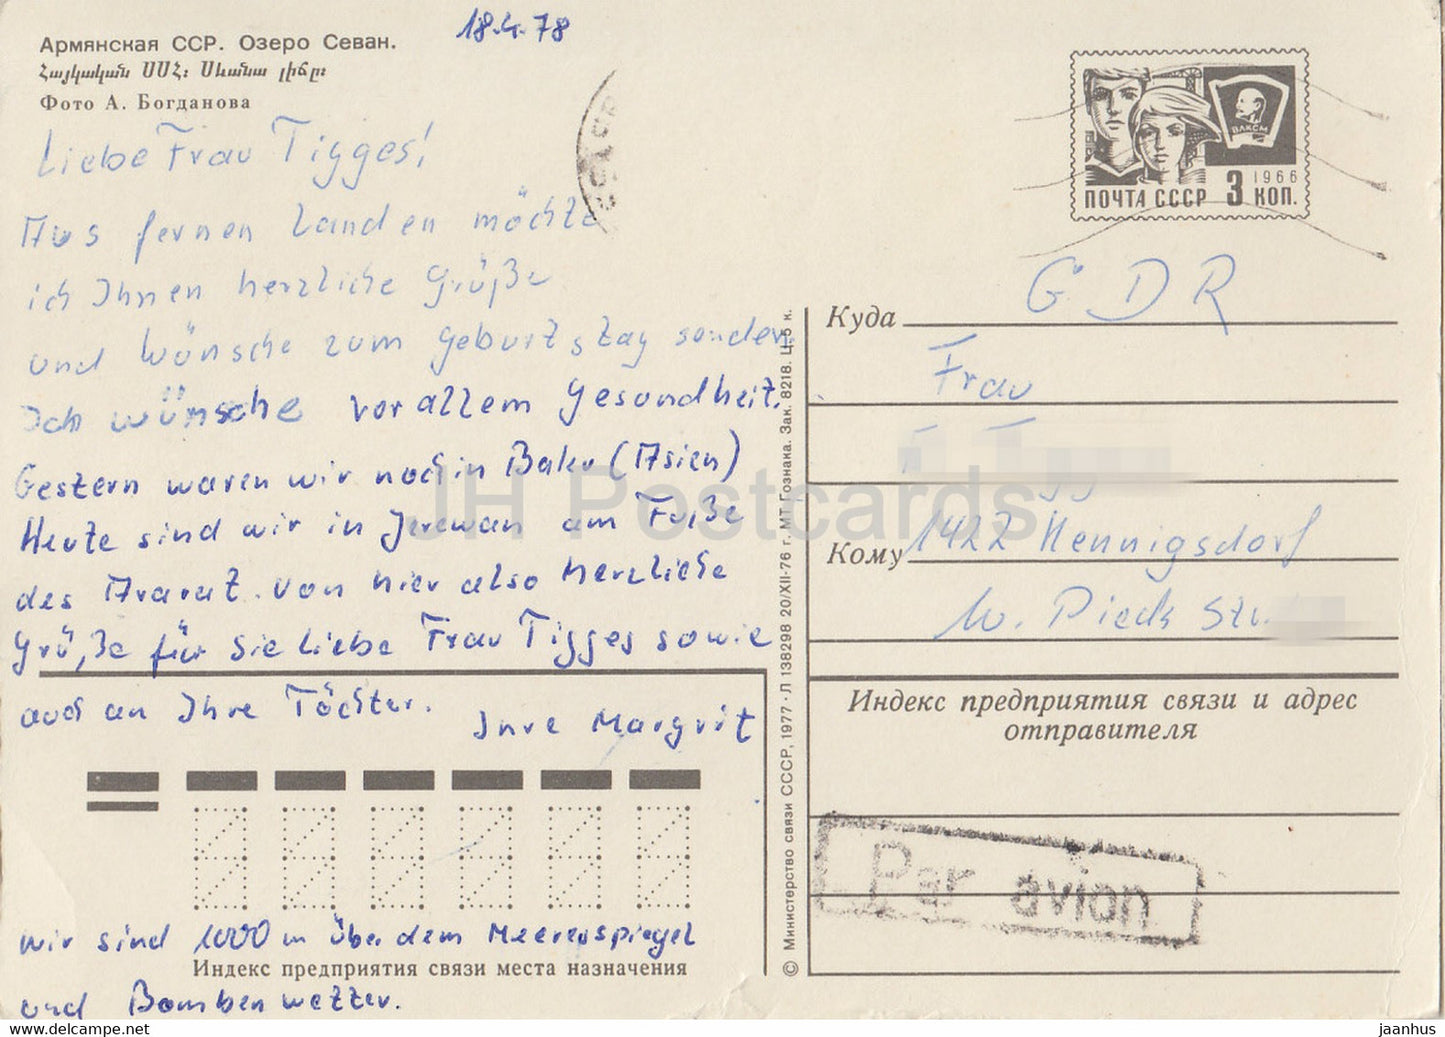 Армянская ССР. Озеро Севан.
Հայկական ՍՍՀ։ Սևանա լիճը։
Фото А. Богданова
18.4.78
Liebe Frau Tigges!
Aus fernen Landen möchte
ich Ihnen herzliche Grüße
und Wünsche zum Geburtstag senden.
Ich wünsche vor allem Gesundheit.
Gestern waren wir noch in Baku (Asien)
Heute sind wir in Jerewan am Fuße
des Ararat. Von hier also herzliche
Grüße für Sie liebe Frau Tigges sowie
auch an Ihre Töchter.
Ihre Margrit
wir sind 1000 m über dem Meeresspiegel
Индекс предприятия связи места назначения
und Bombenwetter.
© Министерство связи СССР, 1977 · Л 138298 20/XII-76 г. МТ Гознака. Зак. 8218. Ц. 5 к.
ВЛКСМ
1966
ПОЧТА СССР 3 КОП.
Куда
GDR
Frau
Кому
1422 Hennigsdorf
W. Pieck Str.
Индекс предприятия связи и адрес
отправителя
Par avion
JH Postcards
www.delcampe.net
jaanhus